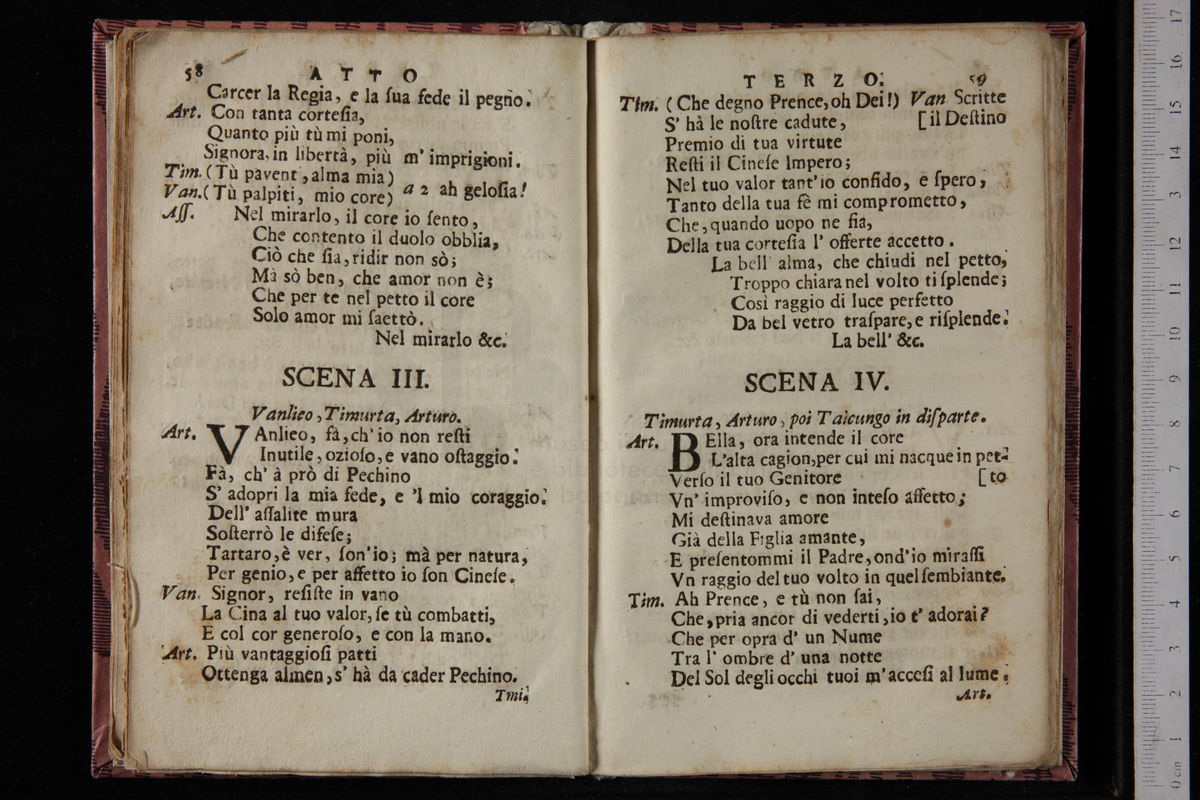 58
ATTO
Carcer la Regia, e la ſua fede il pegno.
Art. Con tanta corteſia,
Quanto più tù mi poni,
Signora, in libertà, più m' imprigioni.
Tim. (Tù pavent, alma mia)
Van. (Tù palpiti, mio core) a 2 ah geloſia!
Aſſ. Nel mirarlo, il core io ſento,
Che contento il duolo obblia,
Ciò che ſia, ridir non sò;
Mà sò ben, che amor non è;
Che per te nel petto il core
Solo amor mi ſaettò.
Nel mirarlo &c.
SCENA III.
Vanlieo, Timurta, Arturo.
Art. VAnlieo, fà, ch' io non reſti
Inutile, ozioſo, e vano oſtaggio.
Fà, ch' à prò di Pechino
S' adopri la mia fede, e 'l mio coraggio.
Dell' aſſalite mura
Soſterrò le difeſe;
Tartaro, è ver, ſon'io; mà per natura,
Per genio, e per affetto io ſon Cineſe.
Van. Signor, reſiſte in vano
La Cina al tuo valor, ſe tù combatti,
E col cor generoſo, e con la mano.
Art. Più vantaggioſi patti
Ottenga almen, s' hà da cader Pechino.
Tmi.
TERZO.
59
Tim. (Che degno Prence, oh Dei!) Van Scritte
S' hà le noſtre cadute, [il Deſtino
Premio di tua virtute
Reſti il Cineſe Impero;
Nel tuo valor tant' io confido, e ſpero,
Tanto della tua fè mi comprometto,
Che, quando uopo ne fia,
Della tua corteſia l' offerte accetto.
La bell' alma, che chiudi nel petto,
Troppo chiara nel volto ti ſplende;
Così raggio di luce perfetto
Da bel vetro traſpare, e riſplende.
La bell' &c.
SCENA IV.
Timurta, Arturo, poi Taicungo in diſparte.
Art. BElla, ora intende il core
L'alta cagion, per cui mi nacque in pet-
Verſo il tuo Genitore [to
Vn' improviſo, e non inteſo affetto;
Mi deſtinava amore
Già della Figlia amante,
E preſentommi il Padre, ond' io miraſſi
Vn raggio del tuo volto in quel ſembiante.
Tim. Ah Prence, e tù non ſai,
Che, pria ancor di vederti, io t' adorai?
Che per opra d' un Nume
Tra l' ombre d' una notte
Del Sol degli occhi tuoi m' acceſi al lume.
Art.